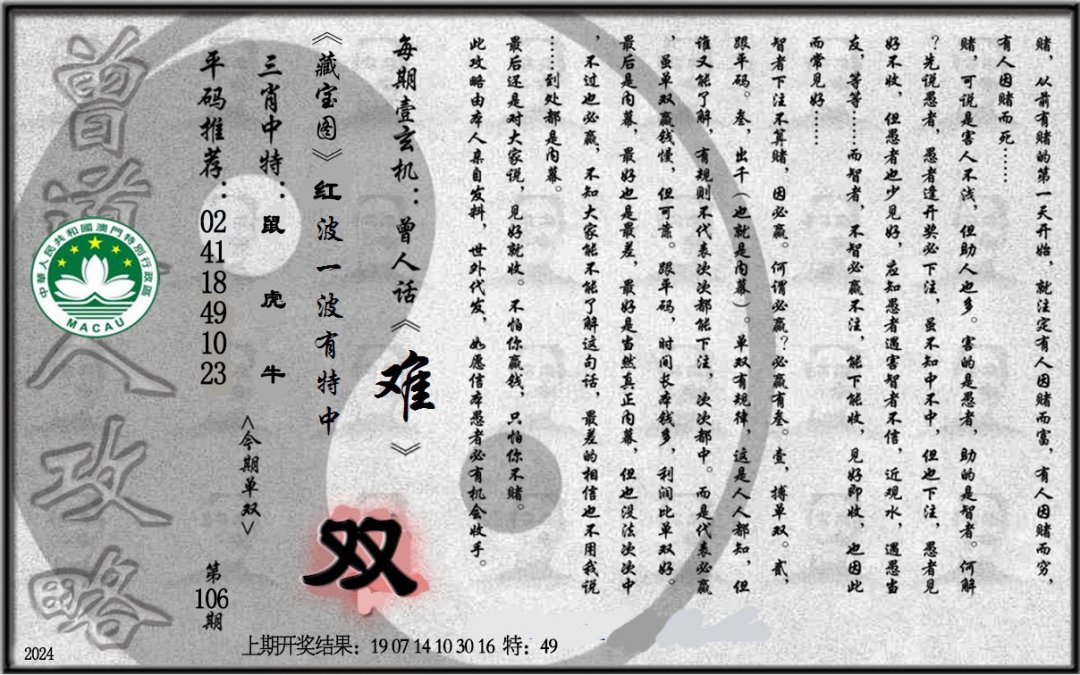 赌，从前有赌的第一天开始，就注定有人因赌而富，有人因赌而穷，
有人因赌而死……
赌，可说是害人不浅，但助人也多。害的是愚者，助的是智者。何解
？先说愚者，愚者逢开奖必下注，虽不知中不中，但也下注，愚者见
好不收，但愚者也少见好，应知愚者遇害智者不信，近观水，遇愚当
友，等等……而智者，不智必赢不注，能下能收，见好即收，也因此
而常见好……
智者下注不算赌，因必赢。何谓必赢？必赢有叁。壹，搏单双。贰，
跟平码。叁，出千（也就是内幕）。单双有规律，这是人人都知，但
谁又能了解，有规则不代表次次都能下注，次次都中。而是代表必赢
，虽单双赢钱慢，但可靠。跟平码，时间长本钱多，利润比单双好。
最后是内幕，最好也是最差，最好是当然真正内幕，但也没法次次中
，不过也必赢，不知大家能不能了解这句话，最差的相信也不用我说
……到处都是内幕。
最后还是对大家说，见好就收。不怕你赢钱，只怕你不赌。
此攻略由本人亲自发料，世外代发，如愿信本愚者必有机会收手。
每期壹玄机：曾人话《难》
《藏宝图》红波一波有特中
双
三肖中特：鼠 虎 牛
<今期单双>
平码推荐：02 41 18 49 10 23
第106期
曾道人攻略
中華人民共和國澳門特別行政區
MACAU
上期开奖结果：19 07 14 10 30 16 特：49
2024